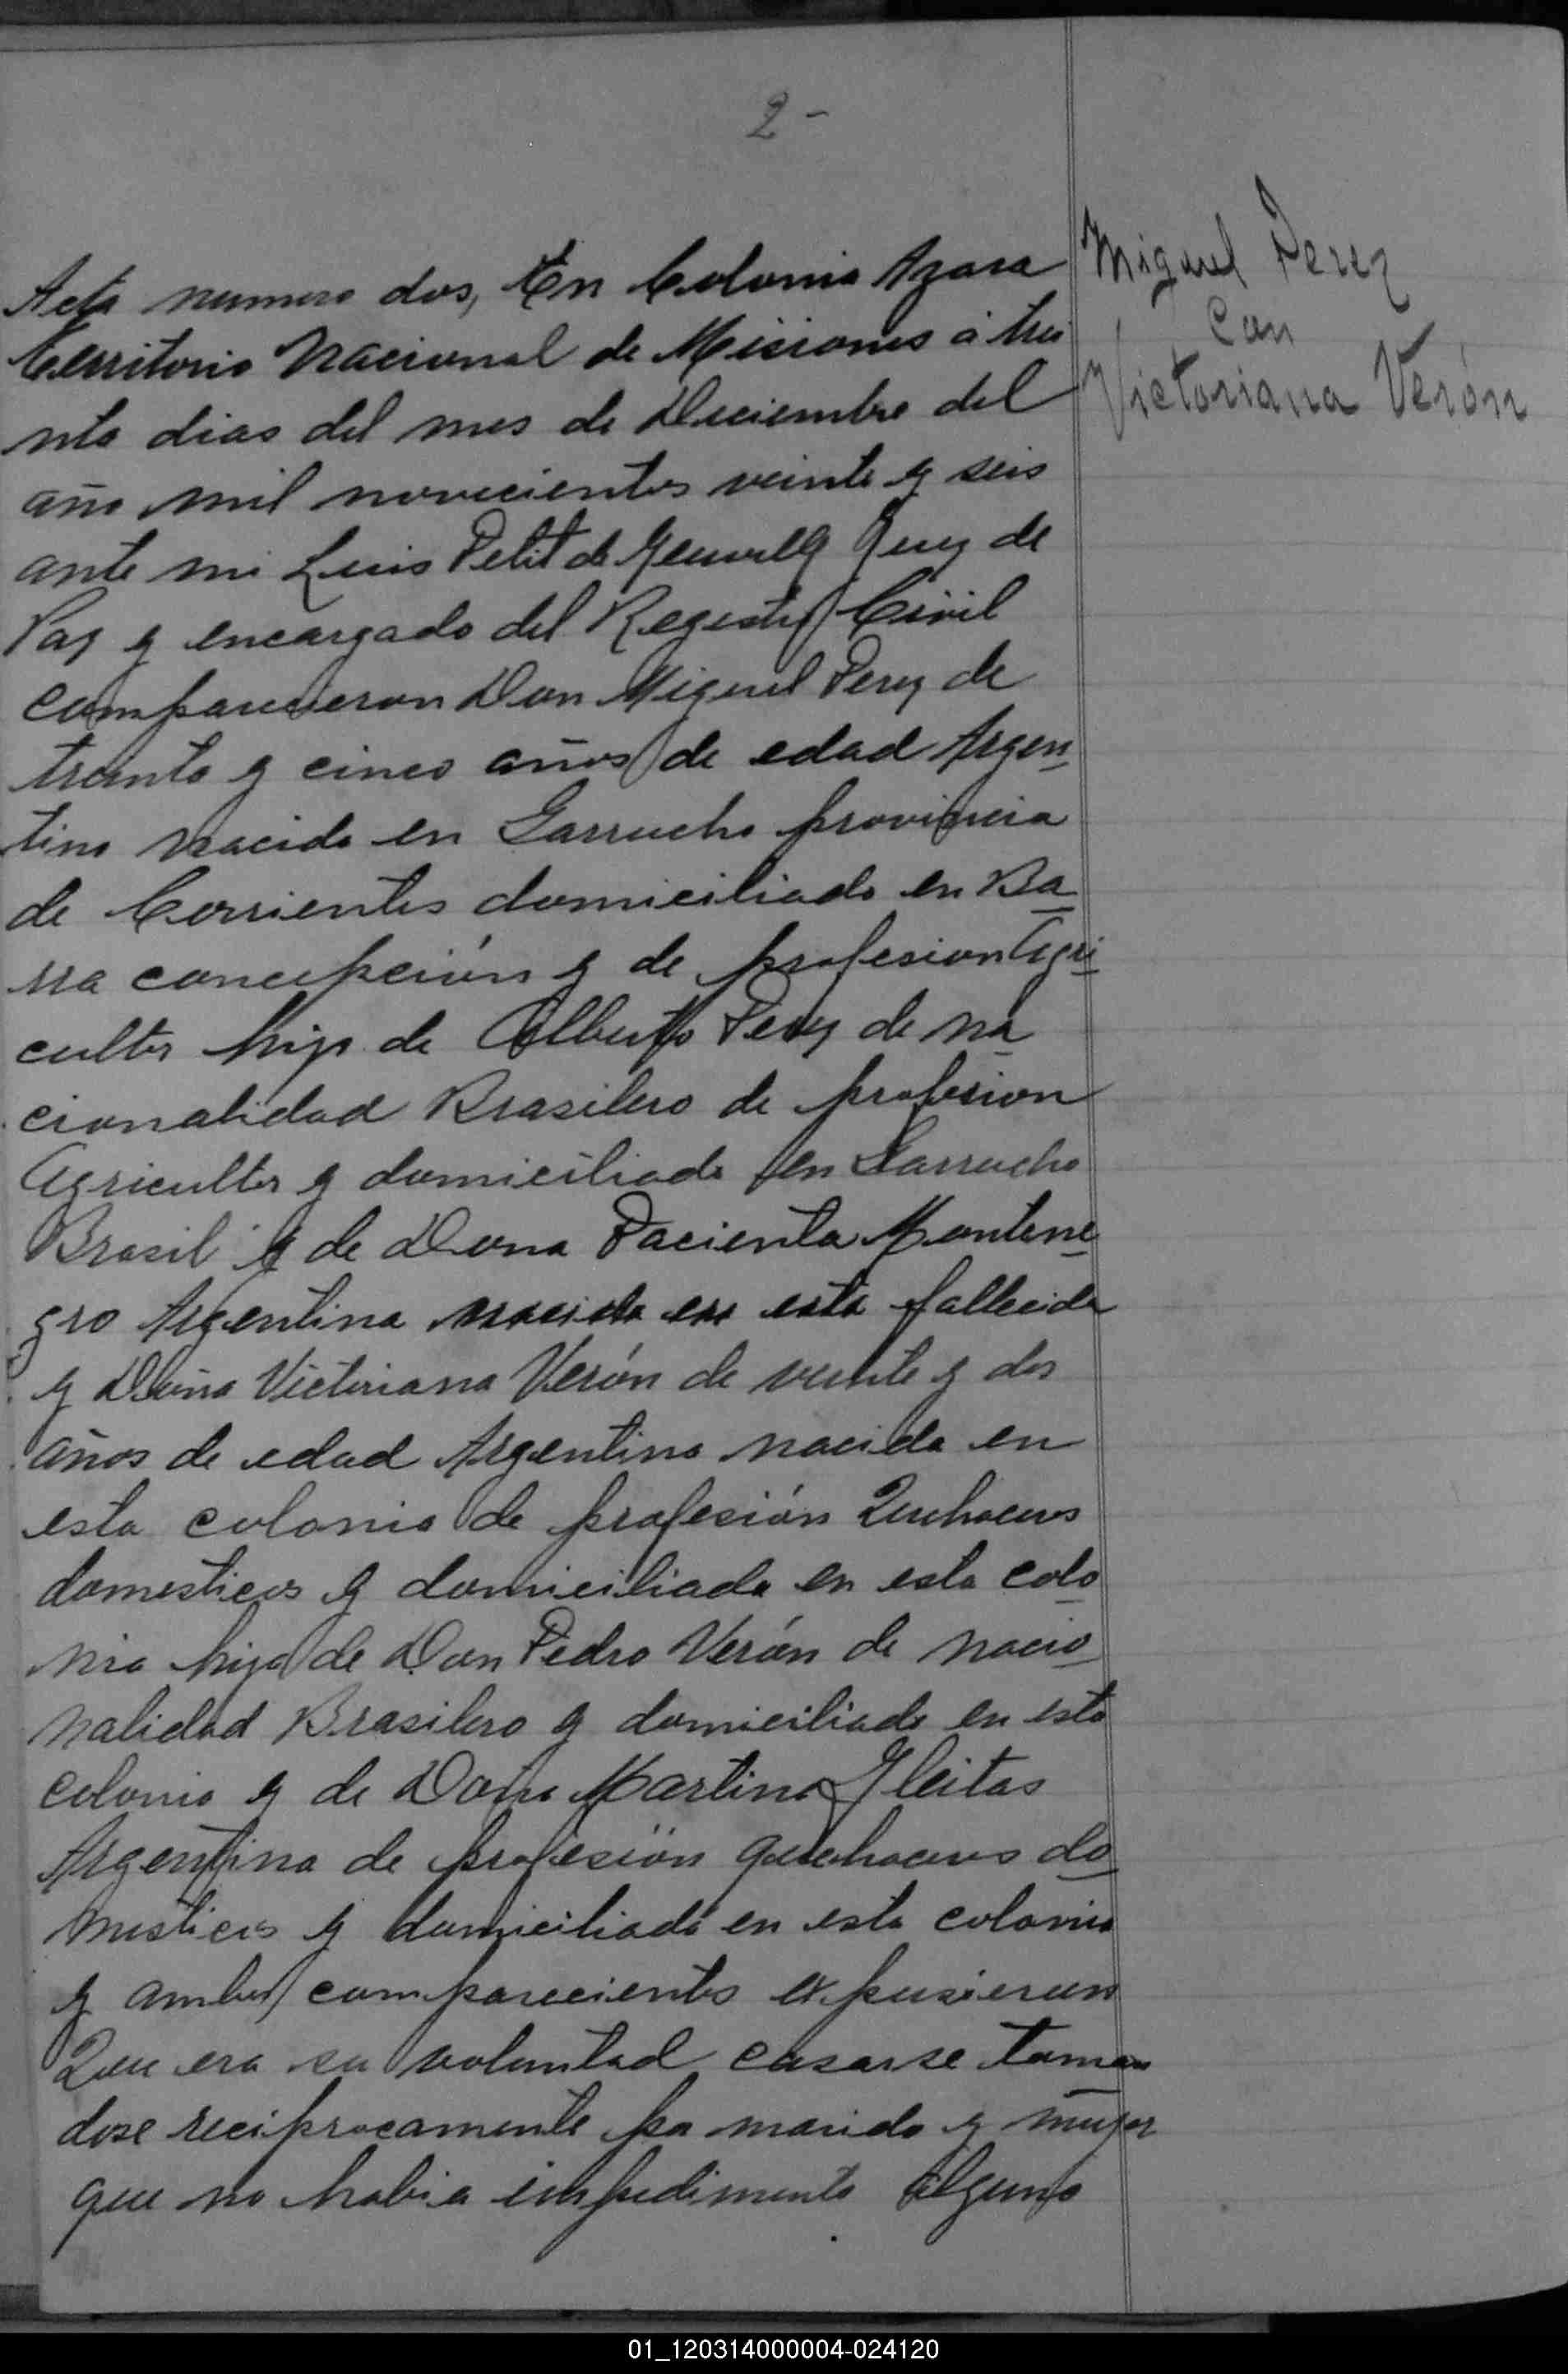 2-
Acta numero dos, En Colonia Azara
territorio Nacional de Misiones á trei
nta dias del mes de Diciembre del
año mil novecientos veinte y seis
ante mi Luis Petit de Juez de
Paz y encargado del Registro Civil
comparecieron Don Miguel Perez de
treinta y cinco años de edad Argen
tino nacido en Garrucho provincia
de Corrientes domiciliado en Ba
rra concepción y de profesion Agri
cultor hijo de Alberto Perez de na
cionalidad Brasilero de profesion
Agricultor y domiciliado en Garrucho
Brasil y de Dona Pacienta Montene
gro Argentina nacida en esta fallecida
y Doña Victoriana Verón de veinte y dos
años de edad Argentina nacida en
esta colonia de profesión Quehaceres
domesticos y domiciliada en esta colo
nia hija de Don Pedro Verón de nacio
nalidad Brasilero y domiciliado en esta
colonia y de Doña Martina Gleitas
Argentina de profesión quehaceres do
mesticos y domiciliada en esta colonia
y ambos comparecientes expusieron
Que era su voluntad casarse toman
dose reciprocamente por marido y mujer
que no habia impedimento alguno
Miguel Perez
Con
Victoriana Verón
01_120314000004-024120